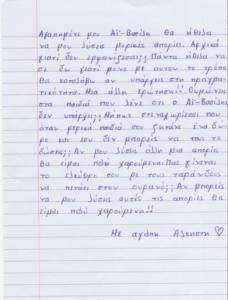 Αγαπημένε μου Αϊ-Βασίλη θα ήθελα
να μου λύσεις μερικές απορίες. Αρχικά
γιατί δεν εμφανίζεσαι; Πάντα ήθελα να
σε δω γιατί μόνο με αυτόν το τρόπο
θα καταλάβω αν υπάρχεις στη πραγμα-
τικότητα. Μια άλλη ερώτηση!! Θυμώνεις
στα παιδιά που λένε ότι ο Αϊ-Βασίλης
δεν υπάρχει; Μήπως στεναχωριέσαι που
όταν μερικά παιδιά σου ζητάνε ένα δώ-
ρο και εσύ δεν μπορείς να τους το
δώσεις; Αν μου λύσεις άλλη μια απορία
θα είμαι πολύ χαρούμενη. Πως γίνεται
το έλκηθρο σου με τους ταράνδους
να πετάει στον ουρανό; Αν μπορείς
να μου λύσεις αυτές τις απορίες θα
είμαι πολύ χαρούμενη!!
Με αγάπη